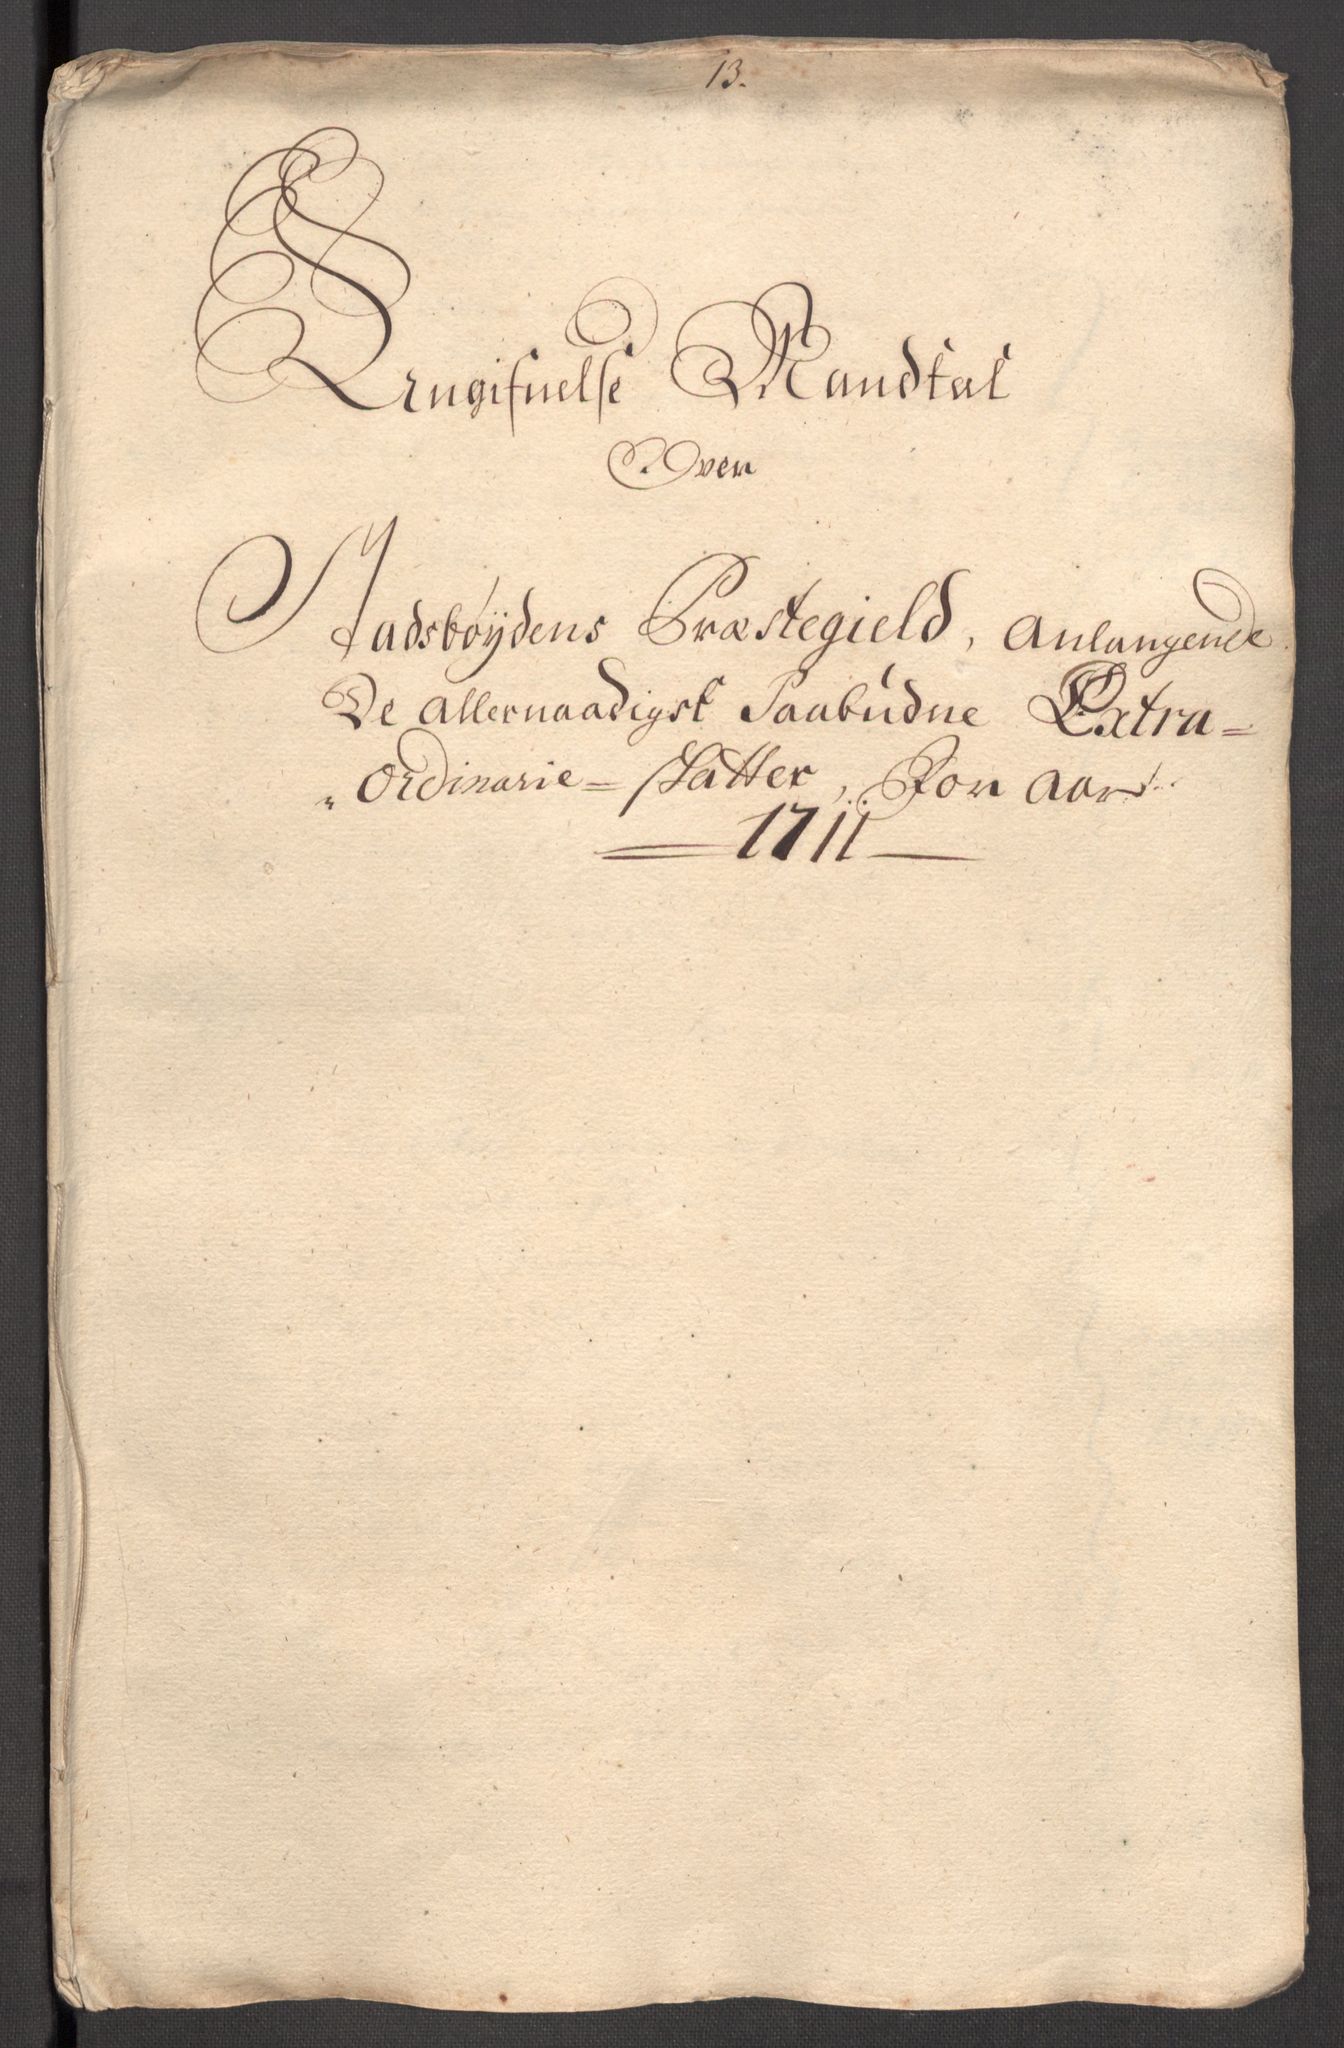 13.
Angifuelse Mandtal
Over
Stadsbøÿdens Præstegield, Anlangende
De Allernaadigst Paabudne Extra=
"Ordinarie= skatter, For Aar
1711